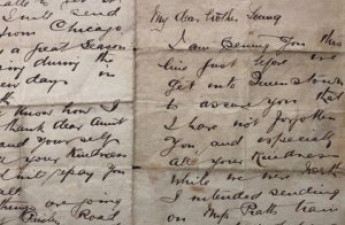 send
from Chicago,
a great season
during the
days in
know how I
thank dear Aunt
and yourself
your Kindness
will repay you
all
things are going
Road
My dear brother Young
I am penning you this
line just before we
get into Queenstown
to assure you that
I have not forgotten
you and especially
all your Kindness
while we were North
I intended sending
on Mrs Pratts train